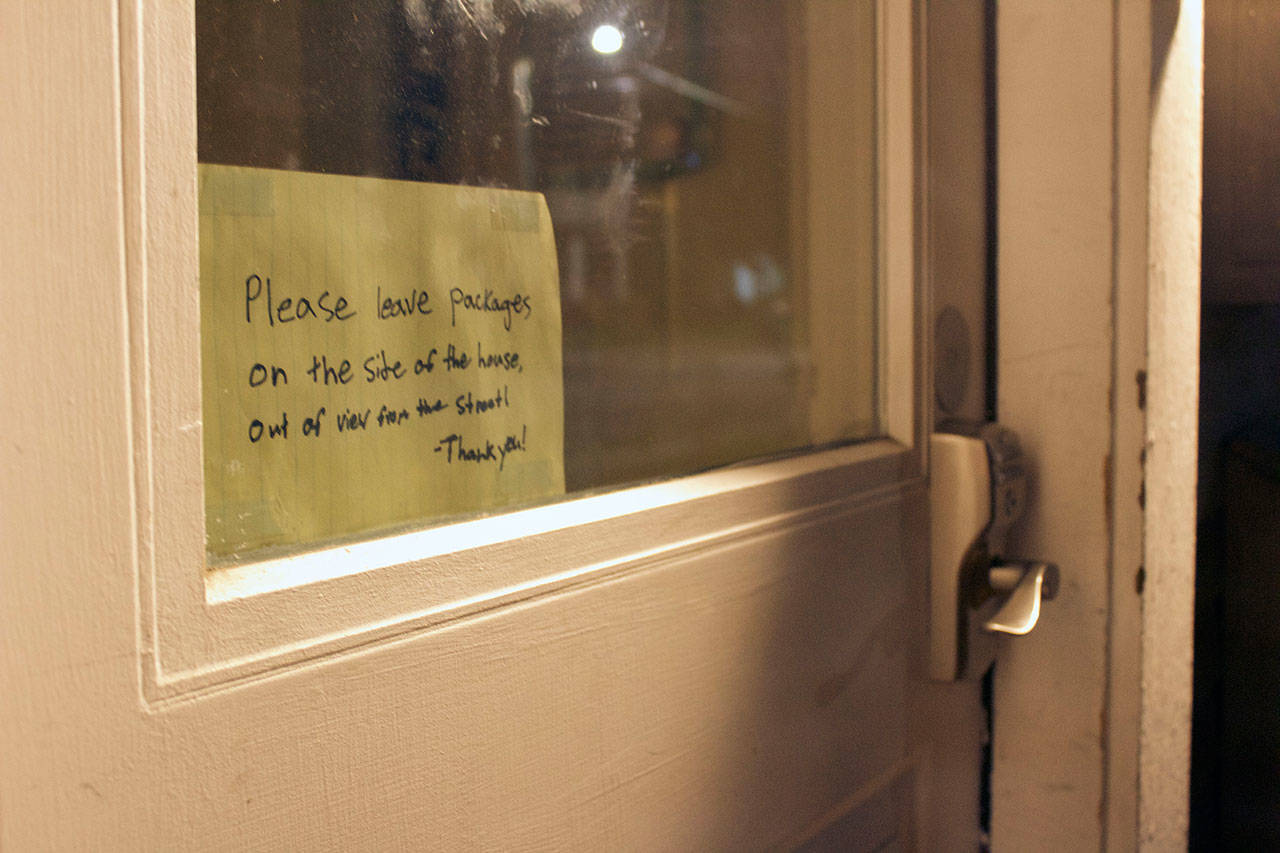 Please leave packages
on the side of the house,
out of view from the street!
-Thank you!